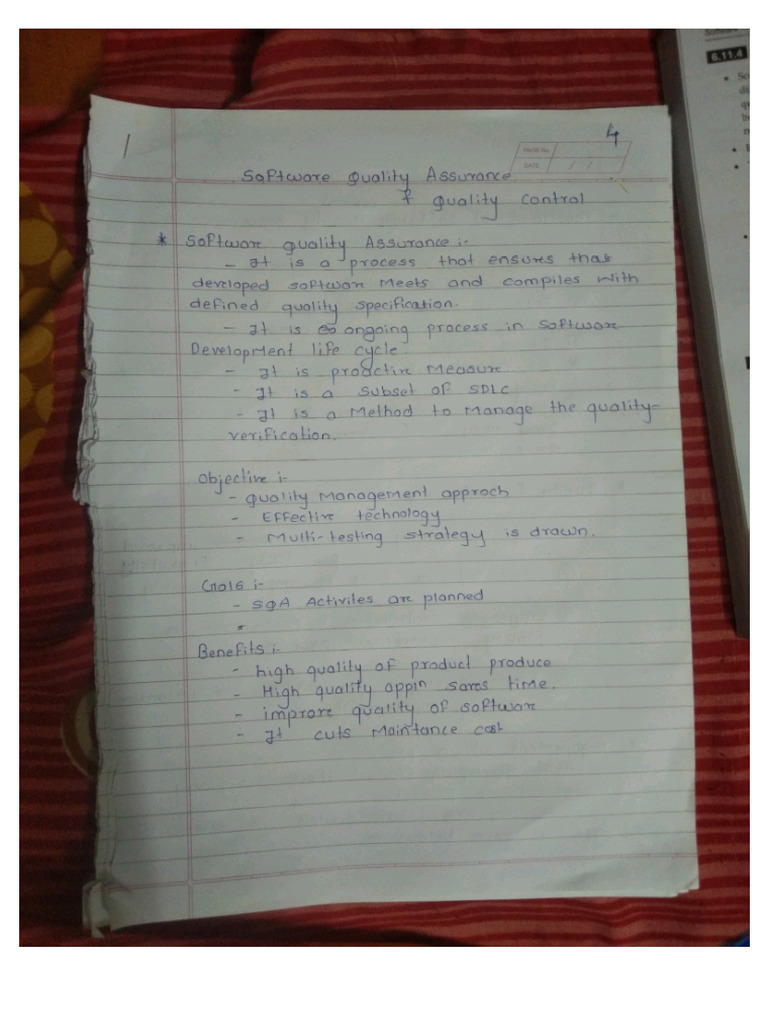 1
4
PAGE No.
DATE / /
Software Quality Assurance
& Quality Control
* Software Quality Assurance :-
- It is a process that ensures that
developed software meets and compiles with
defined quality specification.
- It is ongoing process in Software
Development life cycle.
- It is proactive Measure
- It is a Subset of SDLC
- It is a Method to Manage the quality-
verification.
Objective :-
- Quality Management approch
- Effective technology
- Multi-testing strategy is drawn.
Goals :-
- SQA Activites are planned
Benefits :-
- high quality of product produce
- High quality appln saves time.
- improve quality of software
- It cuts Maintance cost
6.11.4